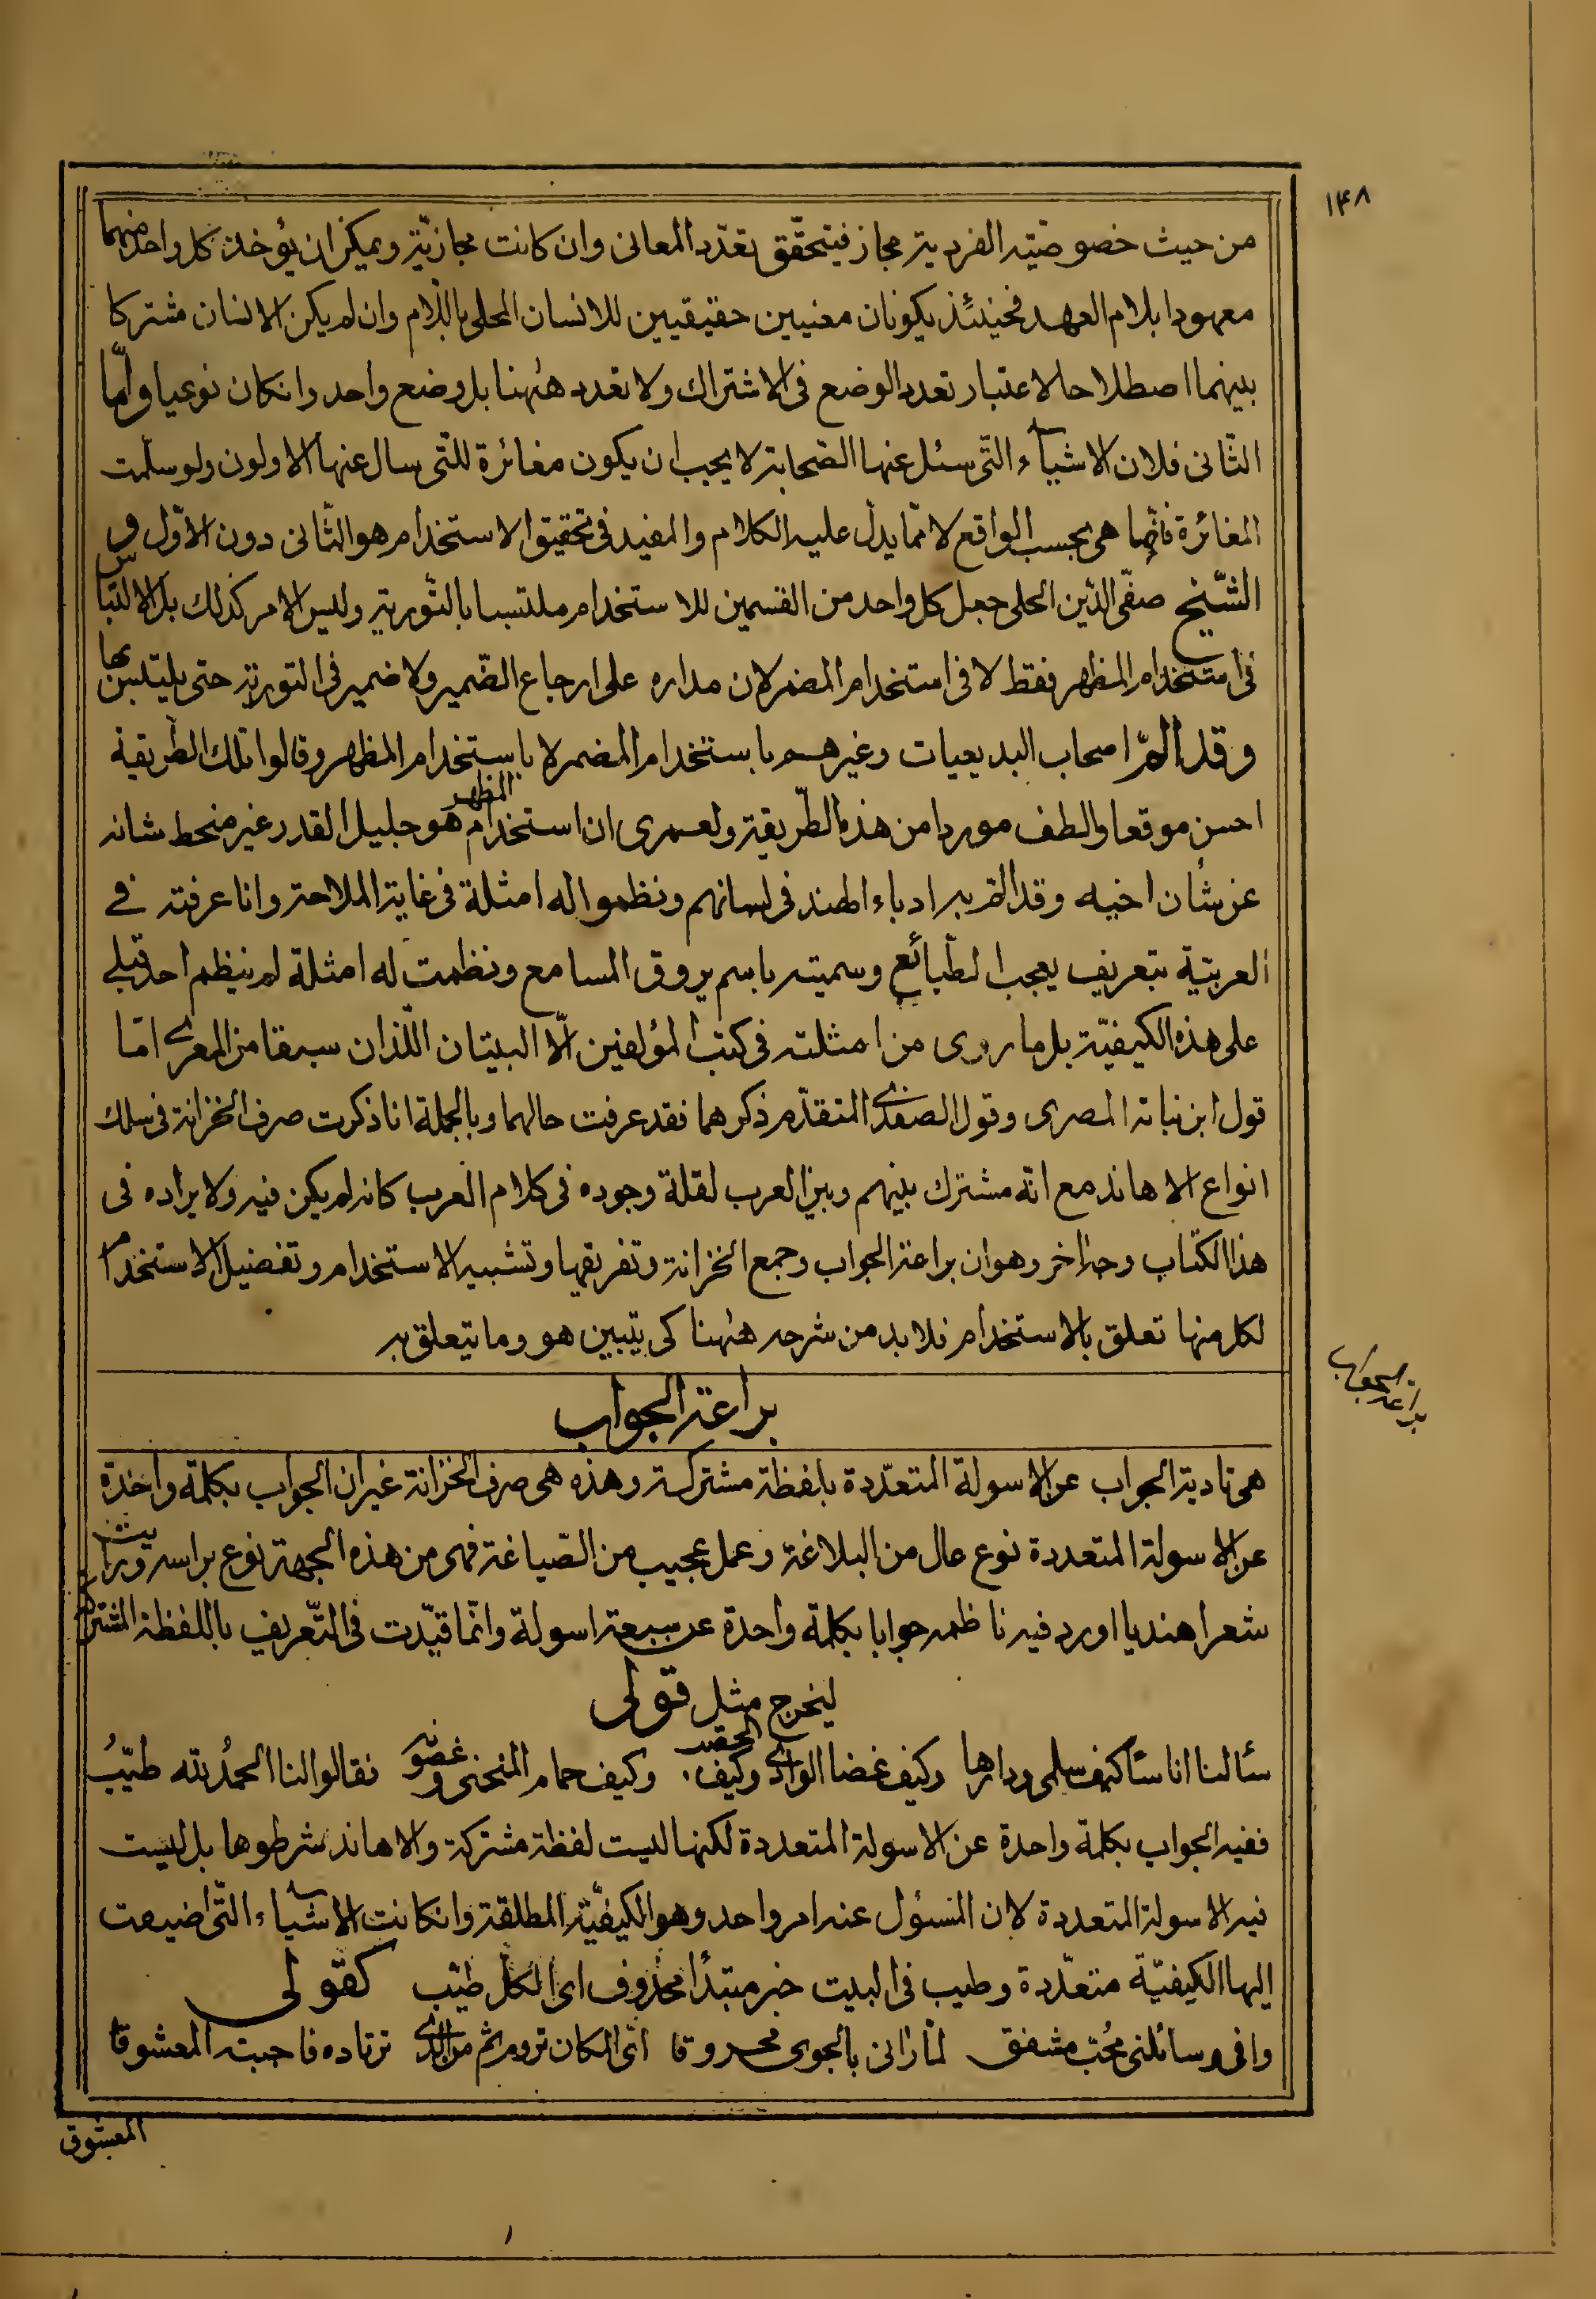 ١٤٨
من حيث خصوصيته الفردية مجاز فيتحقق تعدد المعانى وان كانت مجازيّة ويمكن ان يؤخذ كل واحد منهما
معهودا بلام العهد فحينئذ يكونان معنيين حقيقيين للانسان المحلى باللام وان لم يكن الانسان مشتركا
بينهما اصطلاحا لاعتبار تعدد الوضع فى الاشتراك ولا تعدد ههنا بل وضع واحد وانكان نوعيا وامّا
الثّانى فلان الاشياء التّى سئل عنها الصّحابة لا يجب ان يكون مغائرة للتّى سال عنها الاولون ولو سلمت
المغائرة فانّها هى بحسب الواقع لا ممّا يدلّ عليه الكلام والمفيد فى تحقيق الاستخدام هو الثّانى دون الاوّل و
الشّيخ صفّى الدّين الحلى جعل كل واحد من القسمين للاستخدام ملتبسا بالتّورية وليس الامر كذلك بل الالتباس
فى استخدام المظهر فقط لا فى استخدام المضمر لان مداره على ارجاع الضّمير ولا ضمير فى التورية حتى يلتبس بها
وقد المّ اصحاب البديعيات وغيرهم باستخدام المضمر لا باستخدام المظهر وقالوا تلك الطّريقة
احسن موقعا والطف موردا من هذه الطّريقة ولعمرى ان استخدام المظهر هو جليل القدر غير منحط شانه
عن شأن اخيه وقد المّ به ادباء الهند فى لسانهم ونظموا له امثلة فى غاية الملاحة وانا عرفته فى
العربيّة بتعريف يعجب الطّبائع وسميته باسم يروق المسامع ونظمت له امثلة لم ينظم احد قبلى
على هذه الكيفيّة بل ما روى من امثلته فى كتب المؤلفين الّا البيتان اللّذان سبقا من المعرى امّا
قول ابن نباته المصرى وقول الصفدى المتقدّم ذكرهما فقد عرفت حالهما وبالجملة انا ذكرت صرف الخزانة فى سلك
انواع الاهاند مع انّه مشترك بينهم وبين العرب لقلة وجوده فى كلام العرب كانه لم يكن فيه ولايراده فى
هذا الكتاب وجه اخر وهو ان براعة الجواب وجمع الخزانة وتفريقها وتشبيه الاستخدام وتفضيل الاستخدام
لكل منها تعلق بالاستخدام فلا بد من شرحه ههنا كى يتبين هو وما يتعلق به
براعة الجواب
براعة الجواب
هى تادية الجواب عن الاسولة المتعدّدة بلفظة مشتركة وهذه هى صرف الخزانة غير ان الجواب بكلمة واحدة
عن الاسولة المتعددة نوع عال من البلاغة وعمل عجيب من الصّياغة فهى من هذه الجهة نوع براسه ورايت
شعرا هنديا اورد فيه ناظمه جوابا بكلمة واحدة عن سبعة اسولة وانّما قيّدت فى التّعريف باللفظة المشتركة
ليخرج مثل قولى
سألنا اناسًا كيف سلمى ودارها وكيف غضا الوادى وكيف وكيف حمام المنحنى وغضو نقالوا لنا الحمدُ لله طيّبُ
ففيه الجواب بكلمة واحدة عن الاسولة المتعددة لكنها ليست لفظة مشتركة والاهاند شرطوها بل ليست
فيه الاسولة المتعددة لان المسئول عنه امر واحد وهو الكيفيّة المطلقة وانكانت الاشياء التّى اضيفت
اليها الكيفيّة متعدّدة وطيب فى البيت خبر مبتدأ محذوف اى الكلّ طيّب كقولى
وافى وسائلنى مُحبّ مشفق لمّا رانى بالجوى محروقا اىّ المكان تروم ثم من الذى ترتاده فاجبته المعشوقا
المعشوق